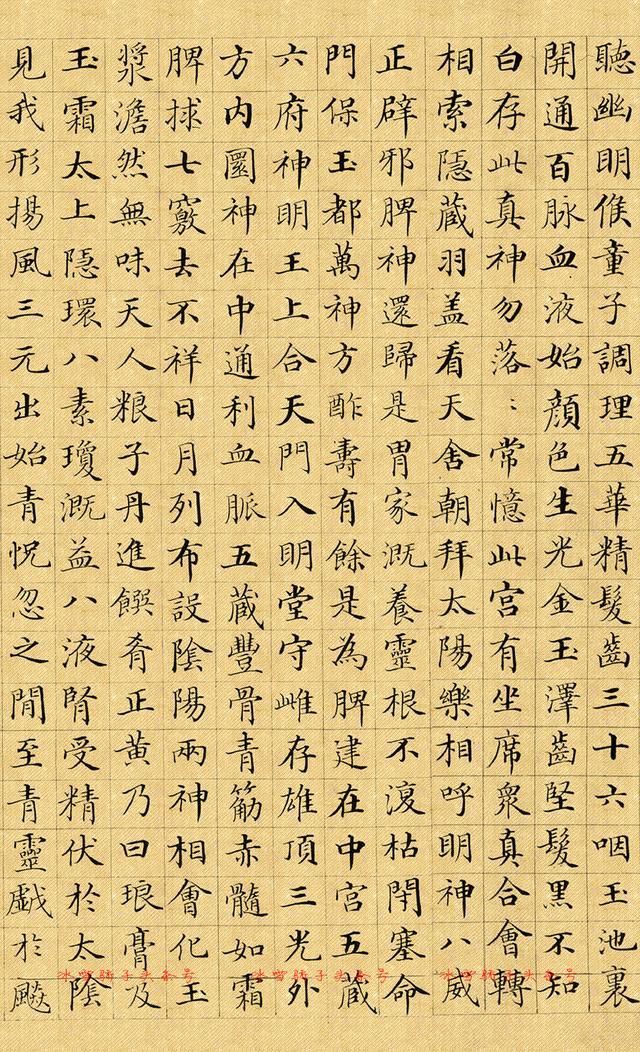 聽幽明俟童子調理五華精髮齒三十六咽玉池裏
開通百脉血液始顏色生光金玉澤齒堅髮黑不知
白存此真神勿落〻常憶此宮有坐席衆真合會轉
相索隱蔵羽盖看天舍朝拜太陽樂相呼明神八威
正辟邪脾神還歸是胃家溉養靈根不澓枯閇塞命
門保玉都萬神方酢壽有餘是為脾建在中宮五蔵
六府神明王上合天門入明堂守雌存雄頂三光外
方内圎神在中通利血脈五蔵豐骨青筋赤髓如霜
脾捄七竅去不祥日月列布設陰陽兩神相會化玉
漿澹然無味天人粮子丹進饌肴正黃乃曰琅膏及
玉霜太上隱環八素瓊溉益八液腎受精伏於太陰
見我形揚風三元出始青怳忽之間至青靈戱於颷